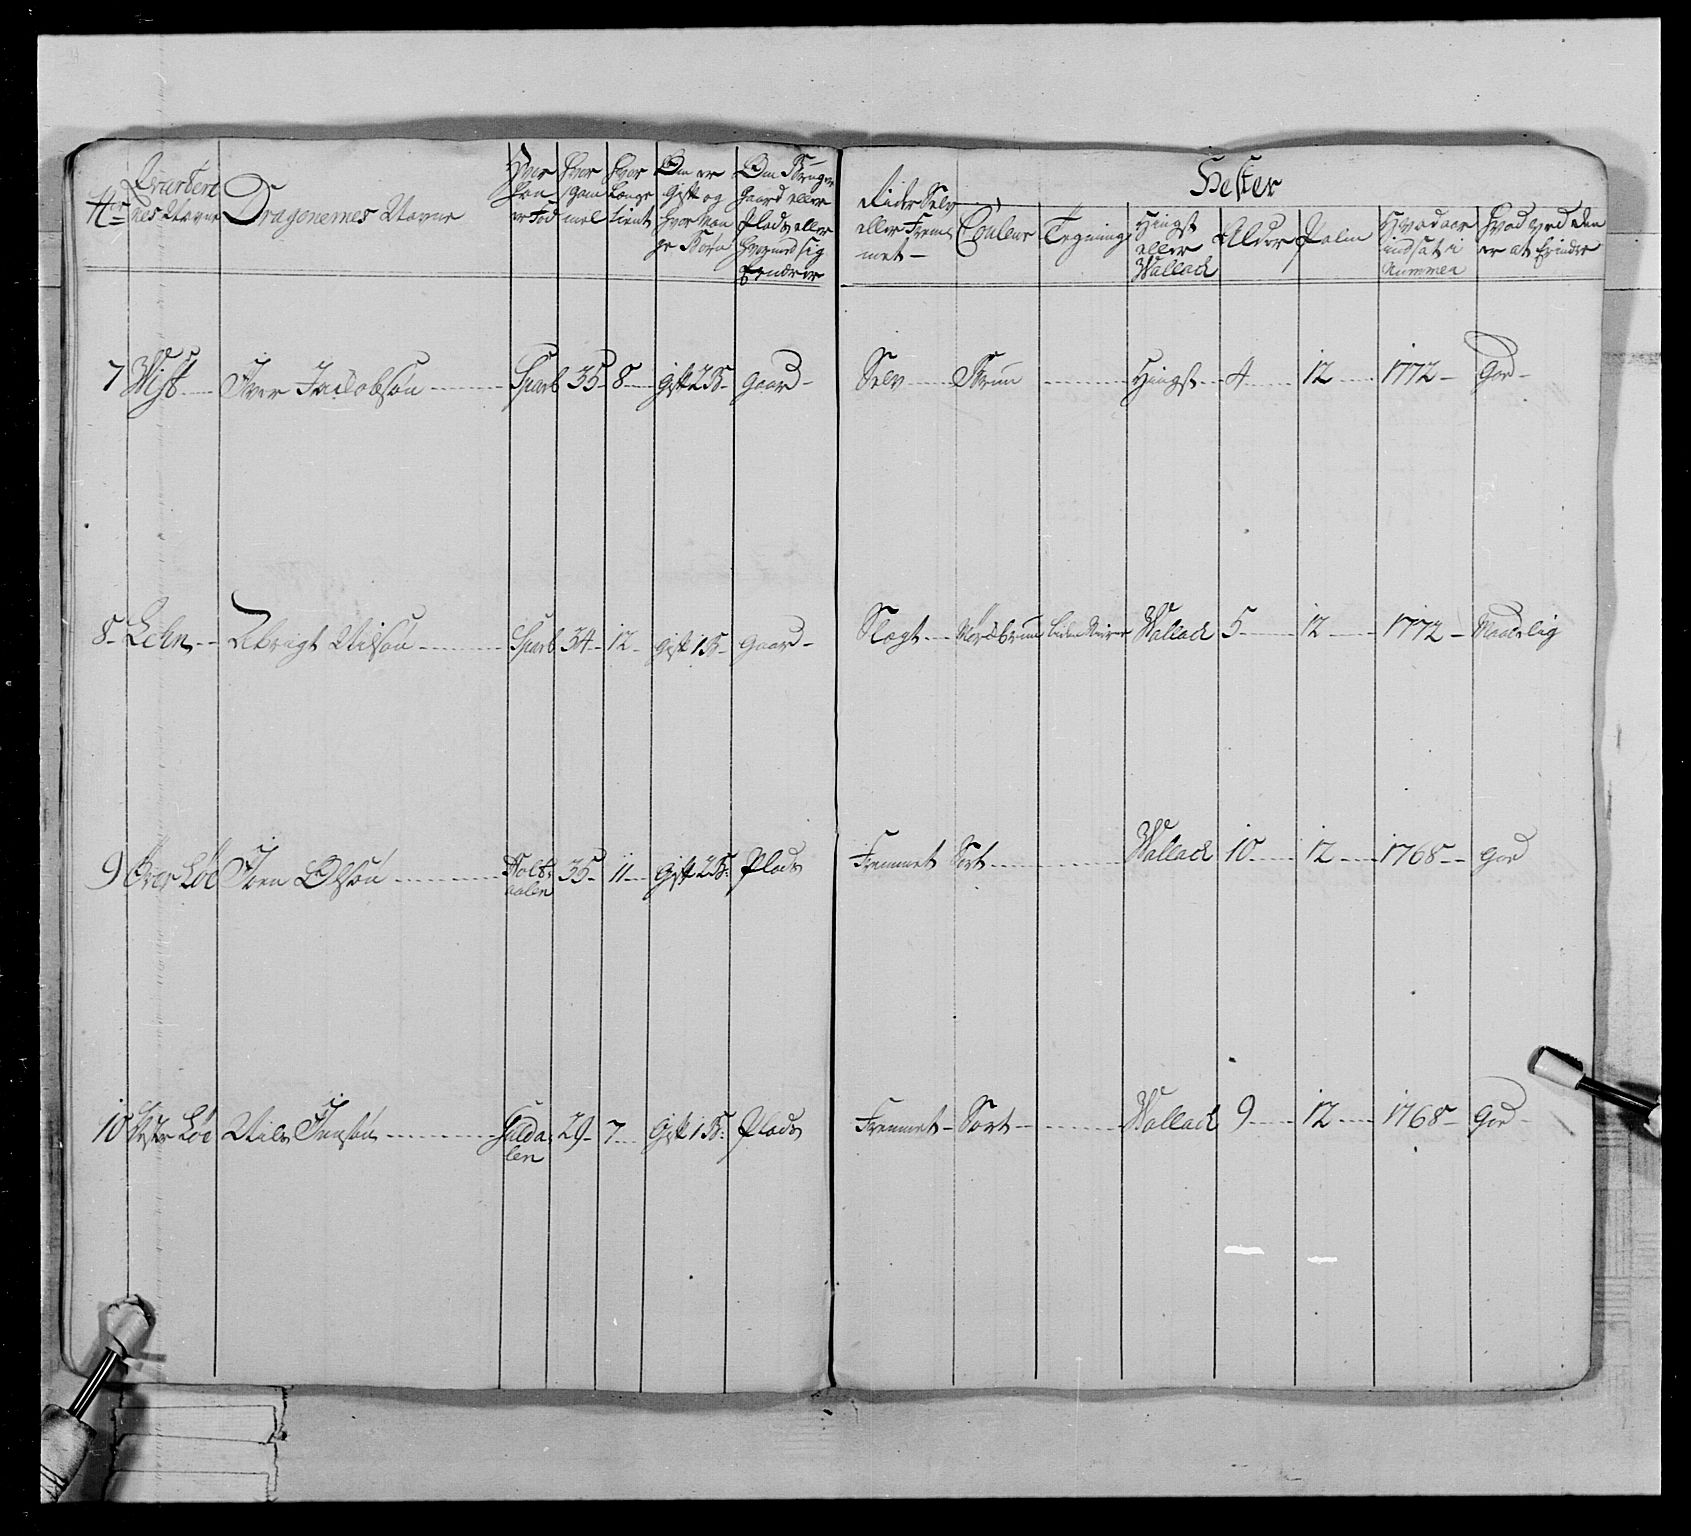 No Qvarteer nes Navne Dragonernes Navne Hvor han er Fød Hvor gammel Hvor Længe tient Om er Gift og Hvor Mange Børn Om Bruger Gaard eller Plads eller Hvormed sig Ernærer
Rider Selv eller Fremmet Hester Couleur Tegning Hingst eller Wallack Alder Palm Hvad aar indsat i Nummer Hvad ved den er at Erindre
7 Wist Iver Jacobsøn Sparb 35 8 Gift 2 B Gaard Selv Brun Hingst 4 12 1772 God
8 Lehn Nilsøn Sparb 34 12 Gift 1 B Gaard Slagt Wallack 5 12 1772 Maadelig
9 Over Løe Joen Olsøn Holtaalen 35 11 Gift 2 B: Plads Fremmet Sort Wallack 10 12 1768 God
10 Løe Nils Jensøn Guldalen 29 7 Gift 1 B: Plads Fremmet Sort Wallack 9 12 1768 God